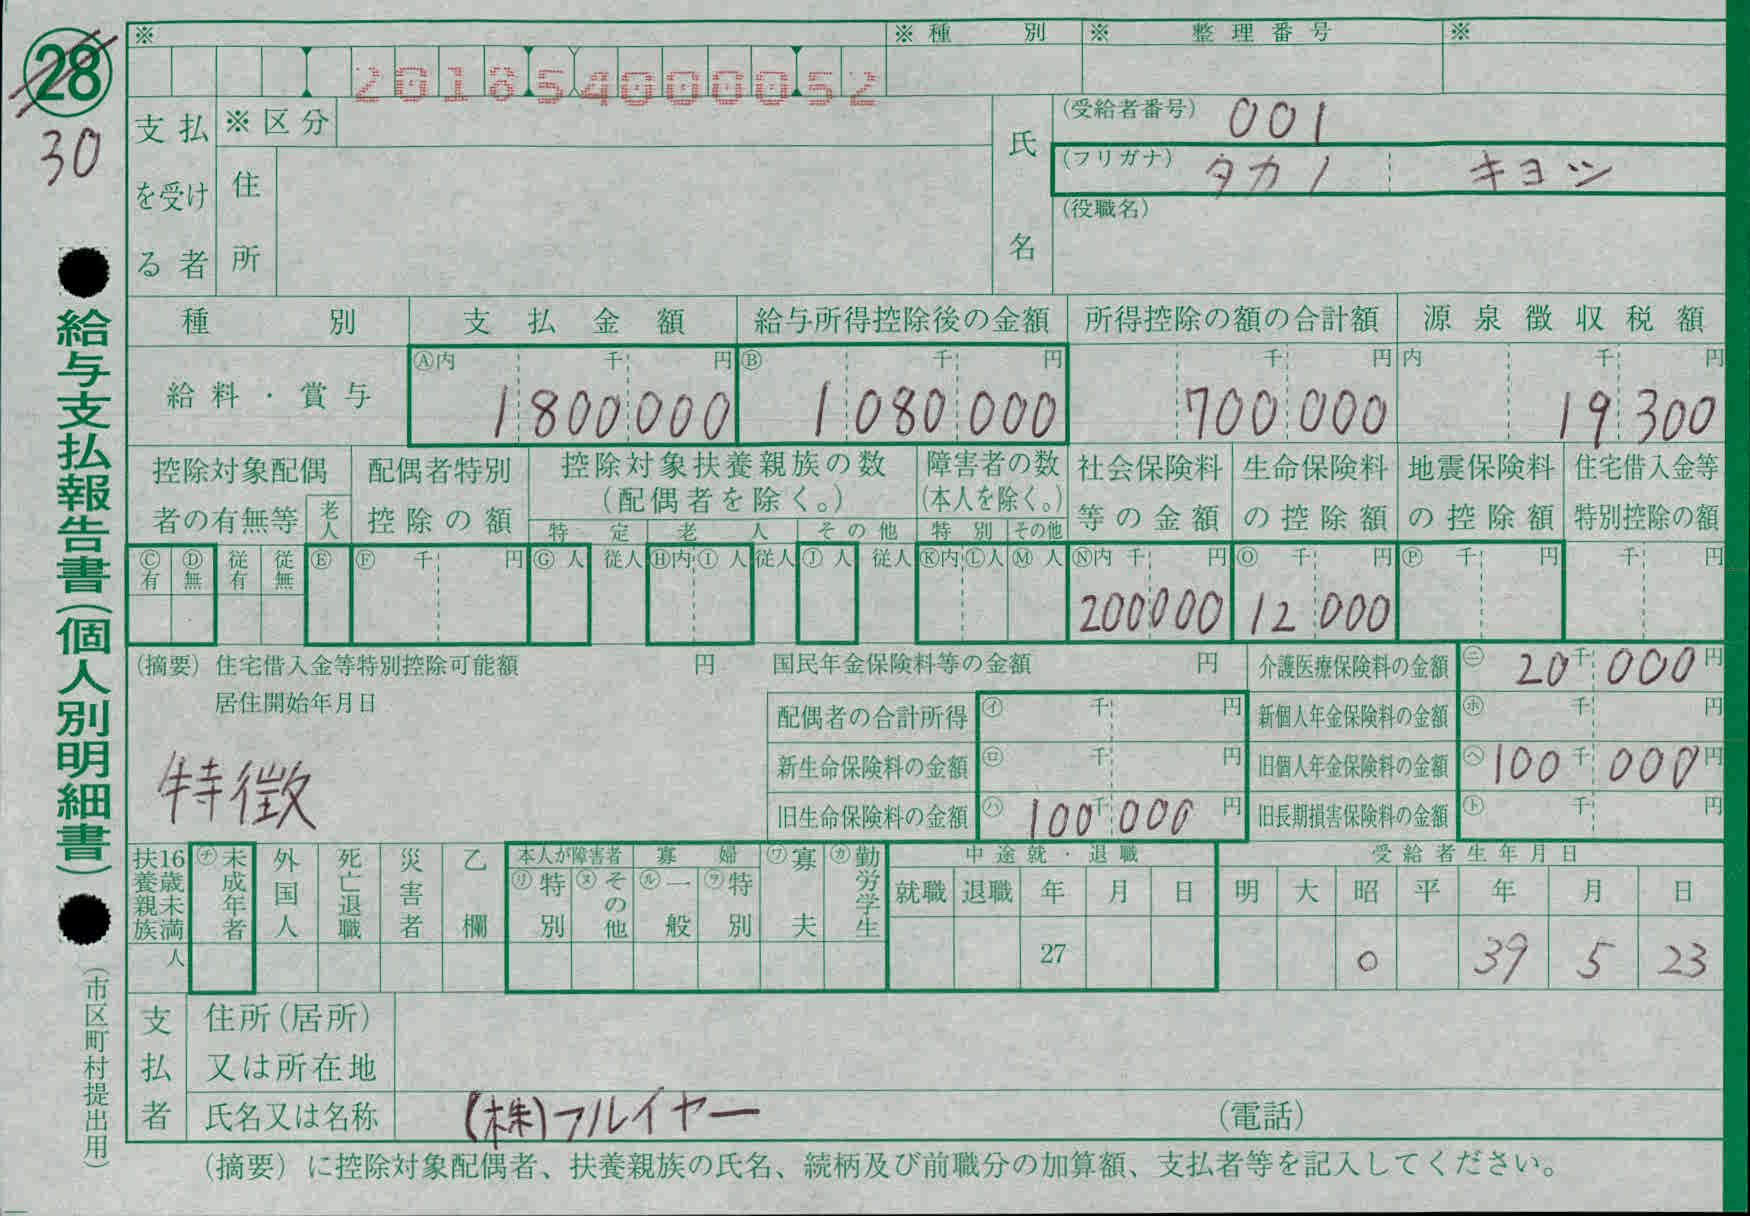 ㉘
30
給与支払報告書(個人別明細書)
(市区町村提出用)
※ ※種別 ※ 整理番号 ※
201854000052
支払を受ける者 ※区分
住所
氏名
(受給者番号) 001
(フリガナ) タカノ キヨシ
(役職名)
種別 支払金額 給与所得控除後の金額 所得控除の額の合計額 源泉徴収税額
給料・賞与 Ⓐ内 千 円 1800000 Ⓑ 千 円 1080000 千 円 700000 内 千 円 19300
控除対象配偶者の有無等 老人 配偶者特別控除の額 控除対象扶養親族の数(配偶者を除く。) 障害者の数(本人を除く。) 社会保険料等の金額 生命保険料の控除額 地震保険料の控除額 住宅借入金等特別控除の額
特定 老人 その他 特別 その他
Ⓒ有 Ⓓ無 従有 従無 Ⓔ Ⓕ 千 円 Ⓖ 人 従人 Ⓗ内 Ⓘ 人 従人 Ⓙ 人 従人 Ⓚ内 Ⓛ人 Ⓜ 人 Ⓝ内 千 円 200000 Ⓞ 千 円 12000 Ⓟ 千 円 千 円
(摘要) 住宅借入金等特別控除可能額 円 国民年金保険料等の金額 円 介護医療保険料の金額 ㋥ 20千000円
居住開始年月日
配偶者の合計所得 ㋑ 千 円 新個人年金保険料の金額 ㋭ 千 円
特徴
新生命保険料の金額 ㋺ 千 円 旧個人年金保険料の金額 ㋬ 100千000円
旧生命保険料の金額 ㋩ 100千000円 旧長期損害保険料の金額 ㋣ 千 円
16歳未満扶養親族 人 ㋠未成年者 外国人 死亡退職 災害者 乙欄 本人が障害者 ㋷特別 ㋦その他 寡婦 ㋸一般 ㋾特別 ㋻寡夫 ㋕勤労学生 中途就・退職 受給者生年月日
就職 退職 年 月 日 明 大 昭 平 年 月 日
27 ○ 39 5 23
支払者 住所(居所)又は所在地
氏名又は名称 (株)フルイヤー (電話)
(摘要)に控除対象配偶者、扶養親族の氏名、続柄及び前職分の加算額、支払者等を記入してください。